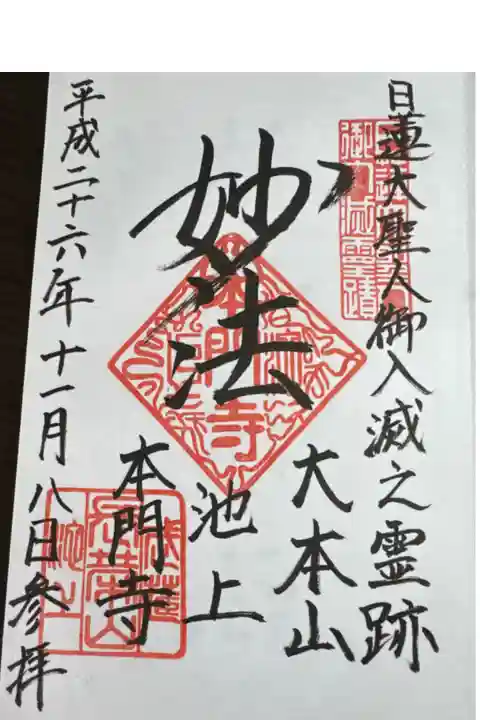 日蓮大聖人御入滅之霊跡
御入滅霊蹟
大本山
妙法
池上
本門寺
平成二十六年十一月八日参拝